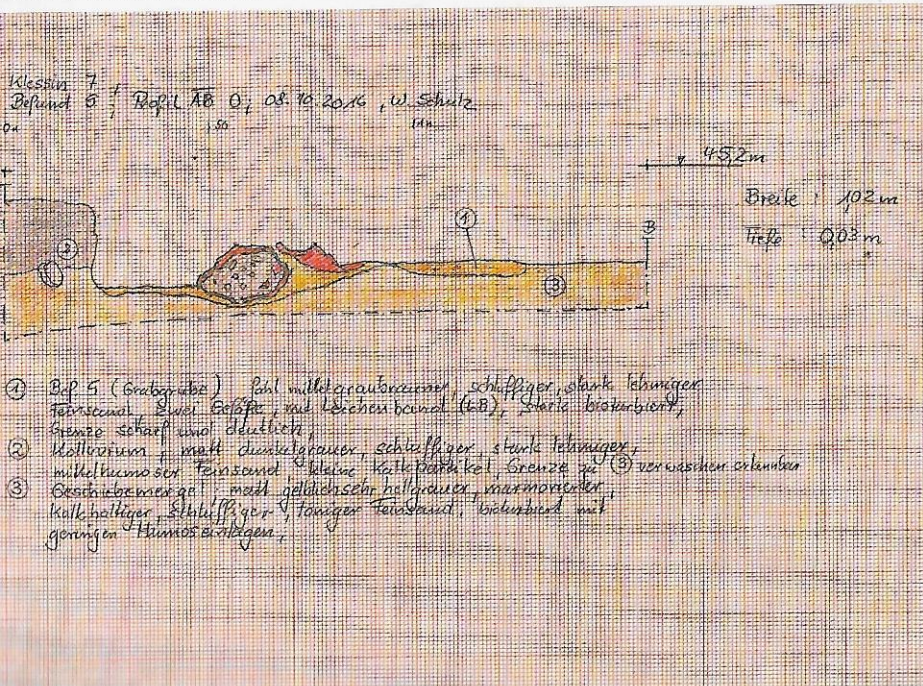 Klessin 7
Befund 5 ; Profil AB O, 08.10.2016, W. Schulz
0m
,50
1m
45,2m
Breite : 1,02 m
Tiefe : 0,03 m
B
1
2
3
① Bef 5 (Grabgrube) fahl mittelgraubrauner, schluffiger, stark lehmiger
Feinsand, zwei Gefäße, mit Leichenbrand (LB), stark bioturbiert,
Grenze scharf und deutlich,
② Kolluvium, matt dunkelgrauer, schluffiger, stark lehmiger,
mittelhumoser Feinsand, kleine Kalkpartikel, Grenze zu ③ verwaschen erkennbar
③ Geschiebemergel, matt gelblichsehr hellgrauer, marmorierter,
kalkhaltiger, schluffiger, toniger Feinsand, bioturbiert mit
geringen Humoseinlagen,